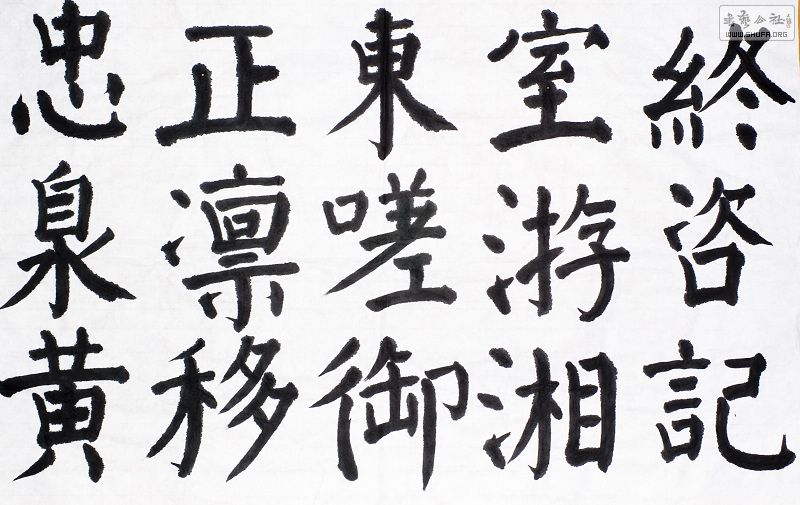 終咨記
室游湘
東嗟御
正凛移
忠泉黄
書藝公社
WWW.SHUFA.ORG